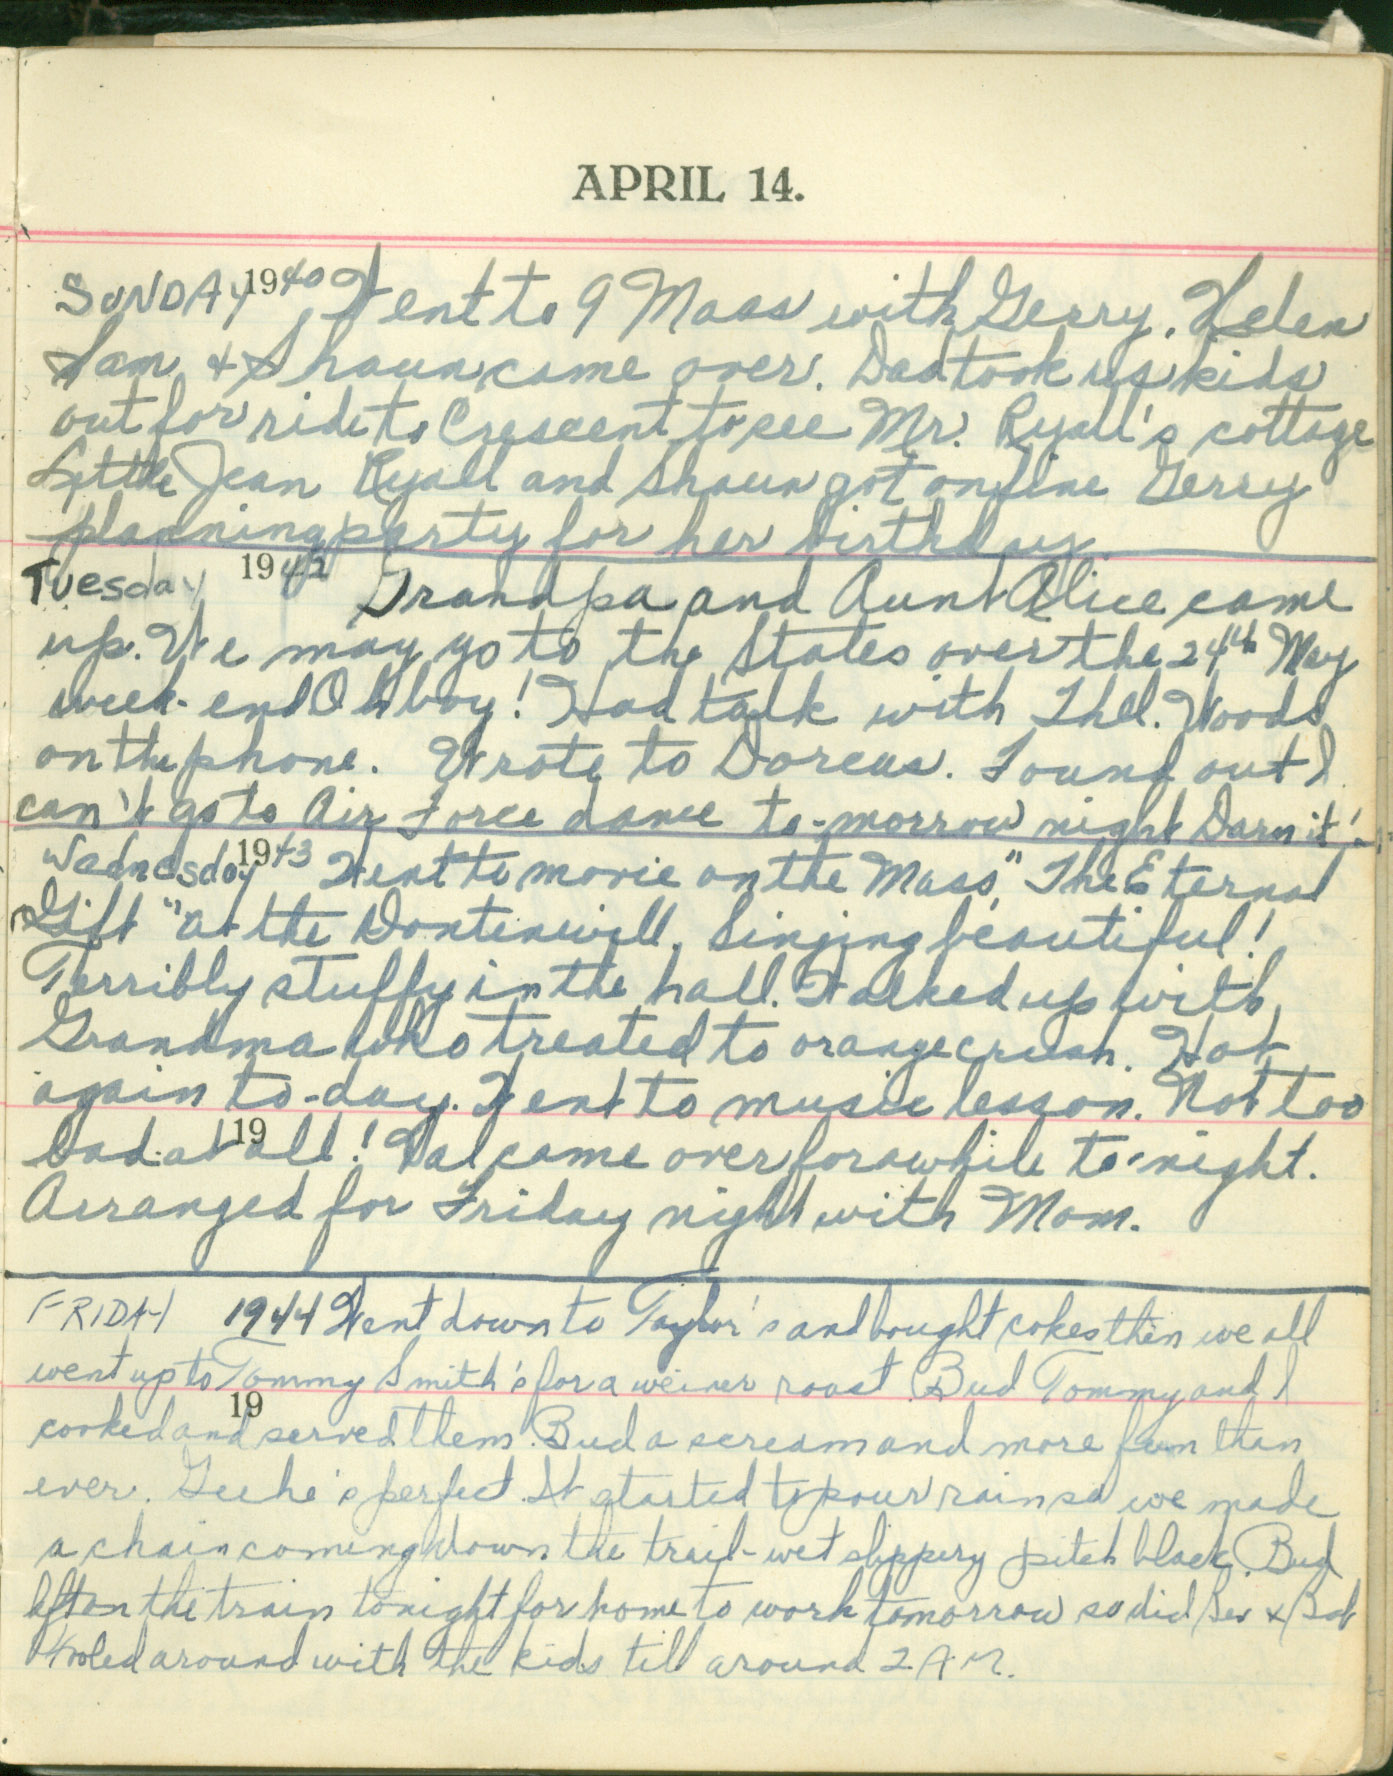 APRIL 14.
SUNDAY 1940 Went to 9 Mass with Gerry. Helen
Sam & Shaun came over. Dad took us kids
out for ride to Crescent to see Mr. Ryall's cottage
Little Jean Ryall and Shaun got on fine Gerry
planning party for her birthday.
Tuesday 1942 Grandpa and Aunt Alice came
up. We may go to the States over the 24th May
week-end Oh boy! Had talk with Thel. Woods
on the phone. Wrote to Dorcas. Found out I
can't go to Air Force dance to-morrow night Darn it!
Wednesday 1943 Went to movie on the Mass, "The Eternal
Gift" at the Dontenwill. Singing beautiful!
Terribly stuffy in the hall. Walked up with
Grandma who treated to orange crush. Hot
again to-day. Went to music lesson. Not too
19
bad at all! Val came over for awhile to-night.
Arranged for Friday night with Mom.
FRIDAY 1944 Went down to Taylor's and bought cokes then we all
went up to Tommy Smith's for a weiner roast. Bud Tommy and I
19
cooked and served them. Bud a scream and more fun than
ever. Gee he's perfect. It started to pour rain so we made
a chain coming down the trail-wet slippery pitch black. Bud
left on the train tonight for home to work tomorrow so did Bev & Bob
Fooled around with the kids till around 2 A.M.